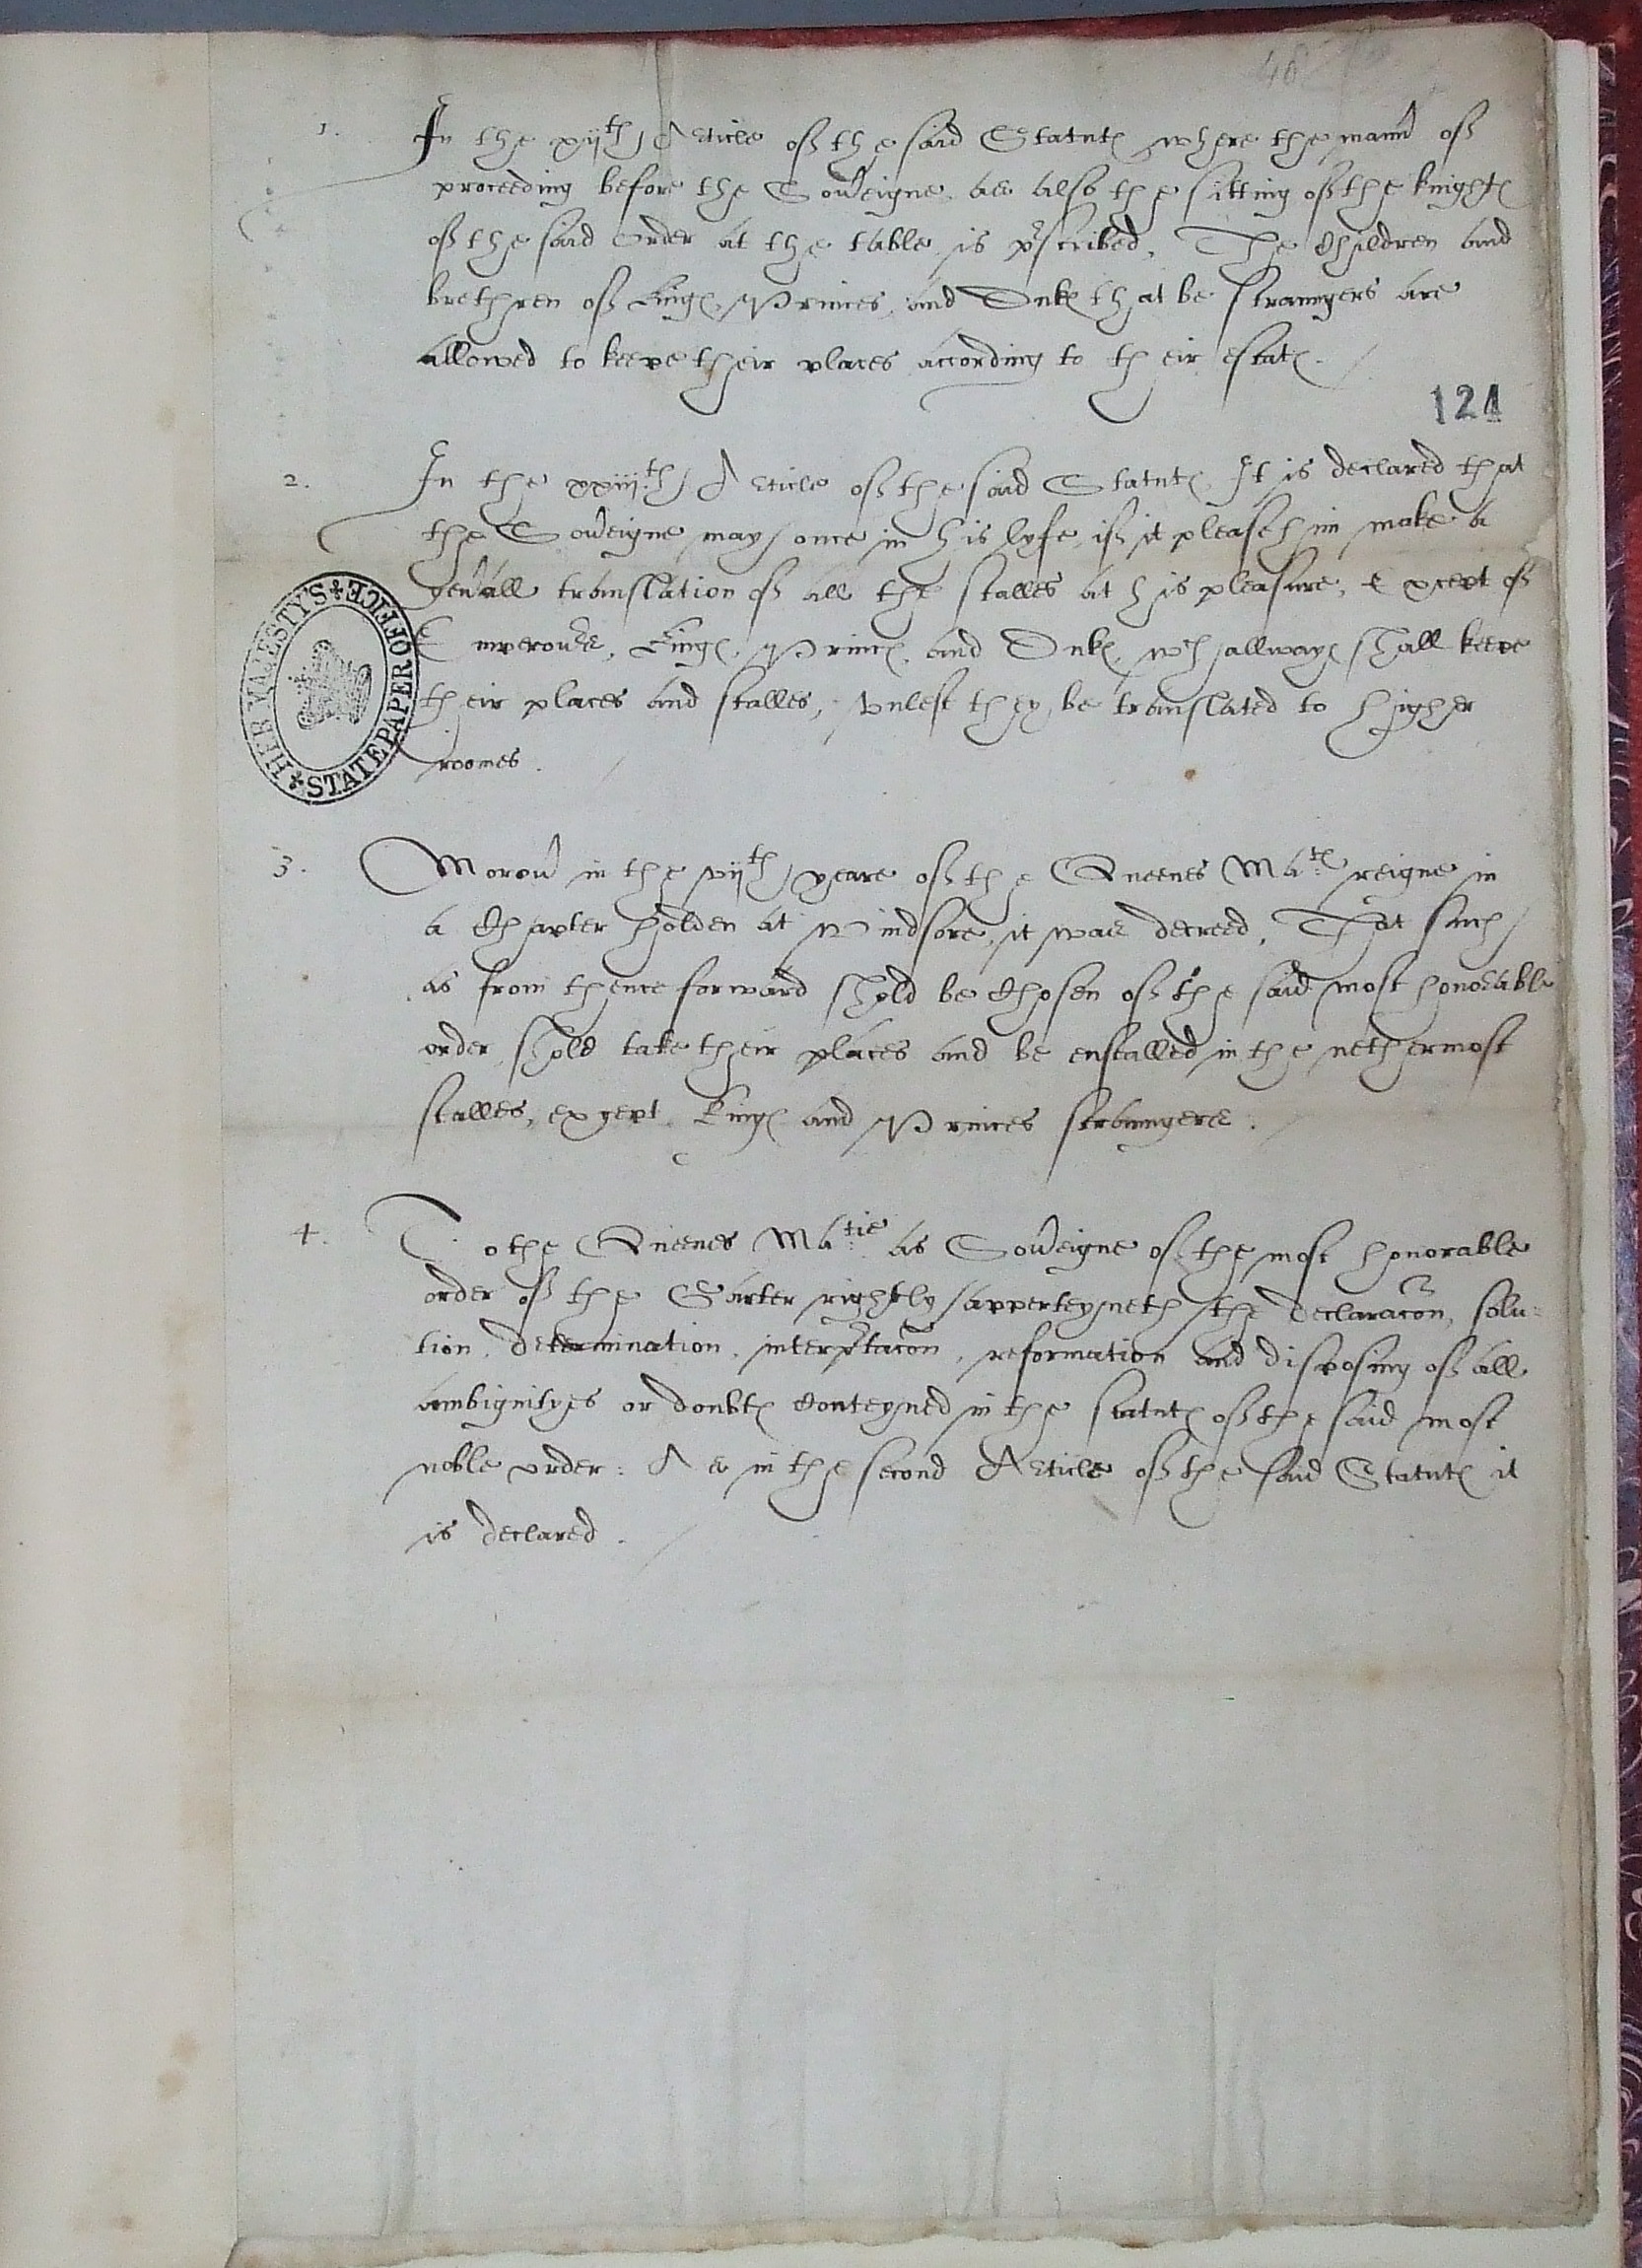 1. In the xijth Article off the said Statut℮ where the mann̄ off
proceeding before the Sou̅eigne as also the sitting off the knight℮
off the said order at the table is p̄scribed, The Children and
brethren off king℮ Princes and Duk℮ that be straungers are
allowed to keepe their places according to their estat℮.
121
2. In the xxiijth Article off the said Statut℮ It is declared that
the Sou̅eigne may once in his lyfe, iff it please him make a
gen̄all translation off all the stalles at his pleasure, Except off
Emperours, king℮ Princ℮ and Duk℮ wch allway℮ shall keepe
their places and stalles, vnlest they be translated to higher
roomes.
HER MAJESTY'S STATE PAPER OFFICE
3. Moreou̅ in the vijth yeare off the Queenes Mat℮ reigne in
a Chapter holden at Windsore, it was decreed, That such
as from thence forward shold be Chosen off the said most honorable
order shold take their places and be enstalled in the nethermost
stalles, except king℮ and Princes straungers.
4. To the Queenes Matie as Sou̅eigne off the most honorable
order off the Garter rightly apperteyneth the declaracōn, solu=
tion, determination, interp̄tacōn, reformation and disposing off all
ambiguityes or doubt℮ Conteyned in the statut℮ off the said most
noble order: As in the second Article off the said Statut℮ it
is declared.